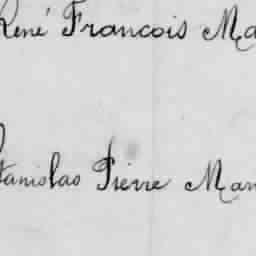 René François Ma
Stanislas Pierre Man